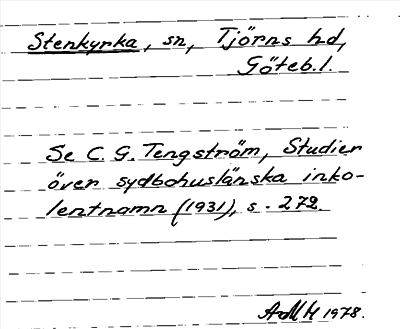 Stenkyrka, sn, Tjörns hd,
Göteb.l.
Se C. G. Tengström, Studier
över sydbohuslänska inko-
lentnamn (1931), s. 272.
AMH 1978.